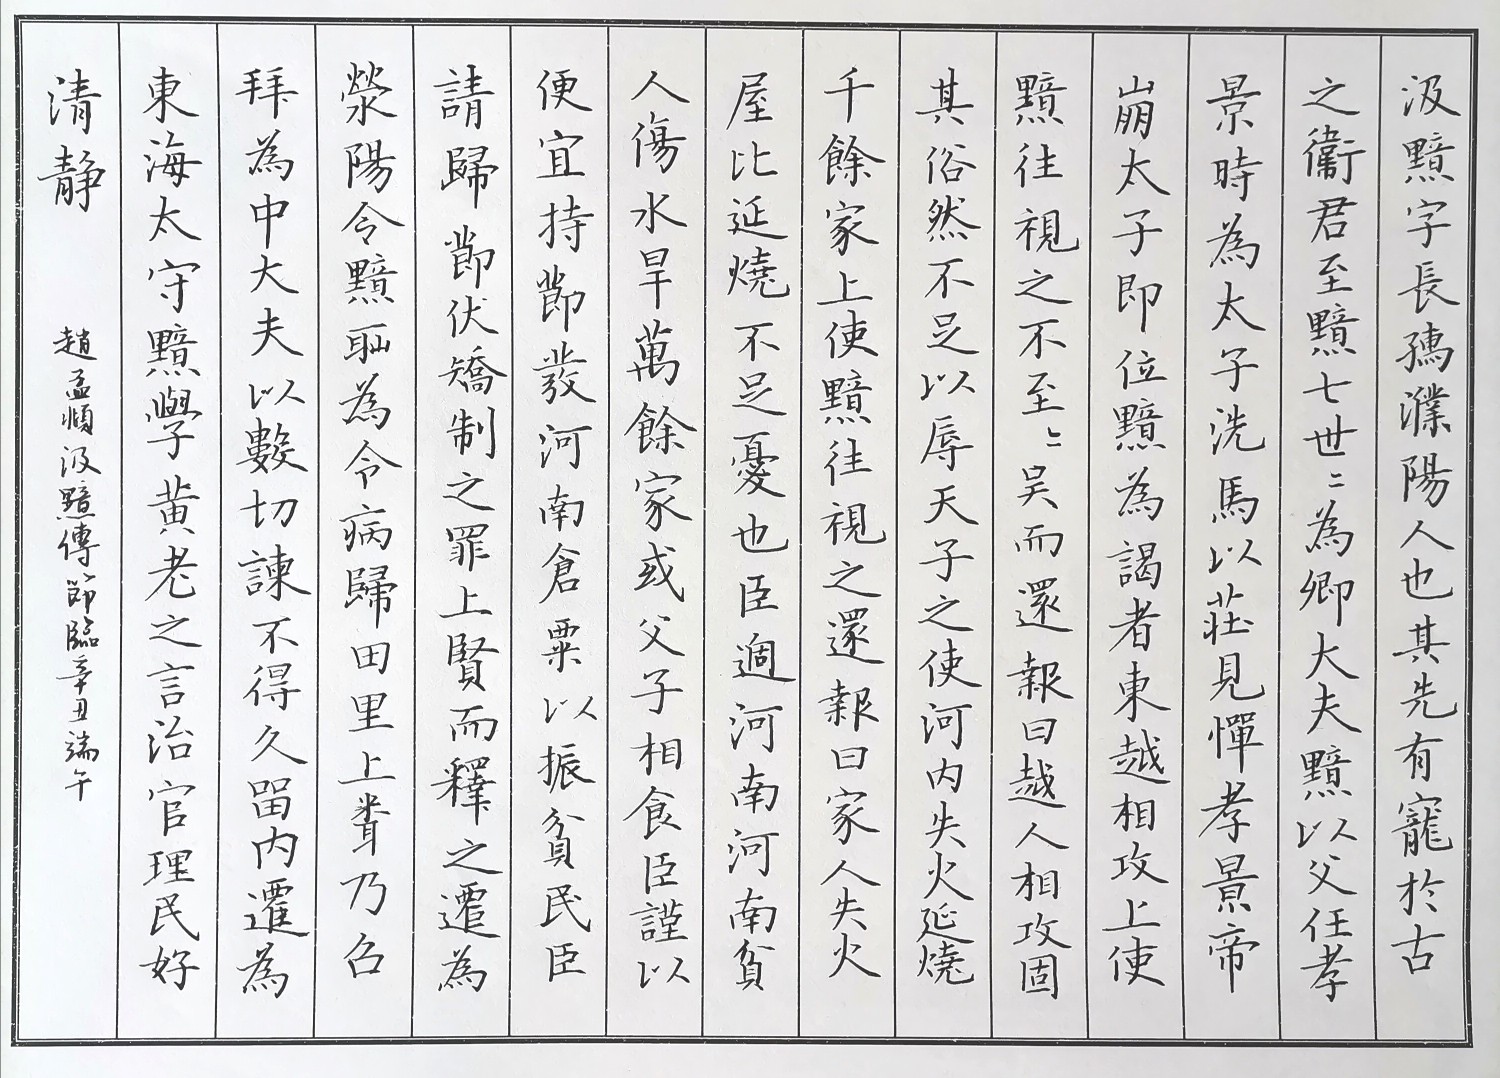 汲黯字長孺濮陽人也其先有寵於古
之衞君至黯七世〻為卿大夫黯以父任孝
景時為太子洗馬以莊見憚孝景帝
崩太子即位黯為謁者東越相攻上使
黯往視之不至〻吴而還報曰越人相攻固
其俗然不足以辱天子之使河内失火延燒
千餘家上使黯往視之還報曰家人失火
屋比延燒不足憂也臣過河南河南貧
人傷水旱萬餘家或父子相食臣謹以
便宜持節發河南倉粟以振貧民臣
請歸節伏矯制之罪上賢而釋之遷為
滎陽令黯恥為令病歸田里上聞乃召
拜為中大夫以數切諫不得久留内遷為
東海太守黯學黄老之言治官理民好
清静
趙孟頫汲黯傳節臨辛丑端午